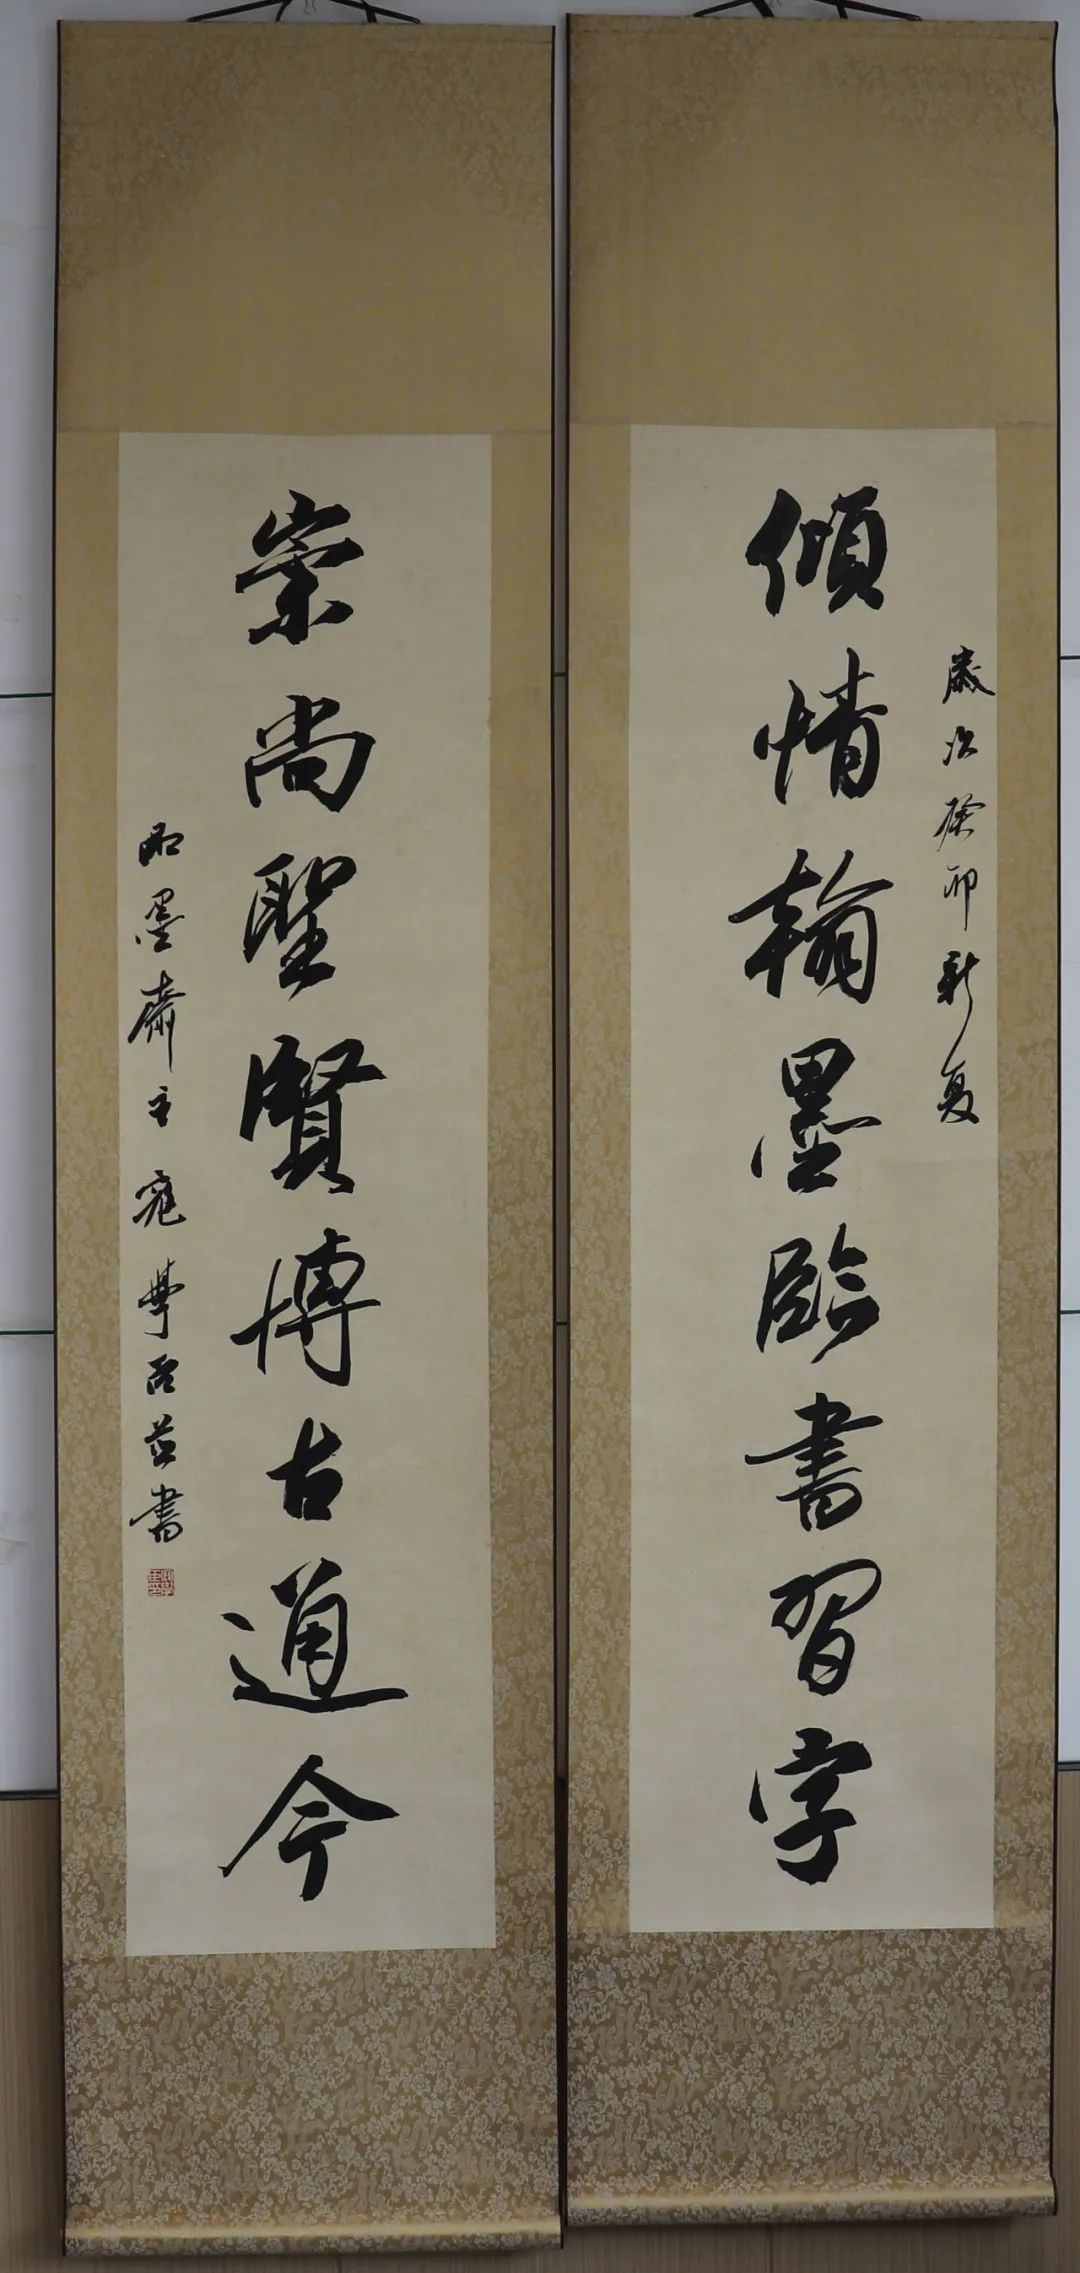 歲次癸卯新夏
傾情翰墨臨書習字
崇尚聖賢博古通今
墨齋主 書